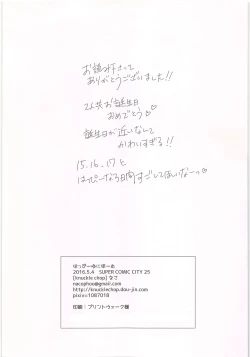 お読み下さって
ありがとうございました!!
2人共お誕生日
おめでとう♡
誕生日が近いなんて
かわいすぎる!!
15.16.17と
はっぴーな3日間すごしてほしいなーっ♡
はっぴーゆにばーす
2016.5.4 SUPER COMIC CITY 25
[knuckle chop] なこ
nacophoo@gmail.com
http://knucklechop.dou-jin.com
pixiv=1087018
印刷：プリントウォーク様